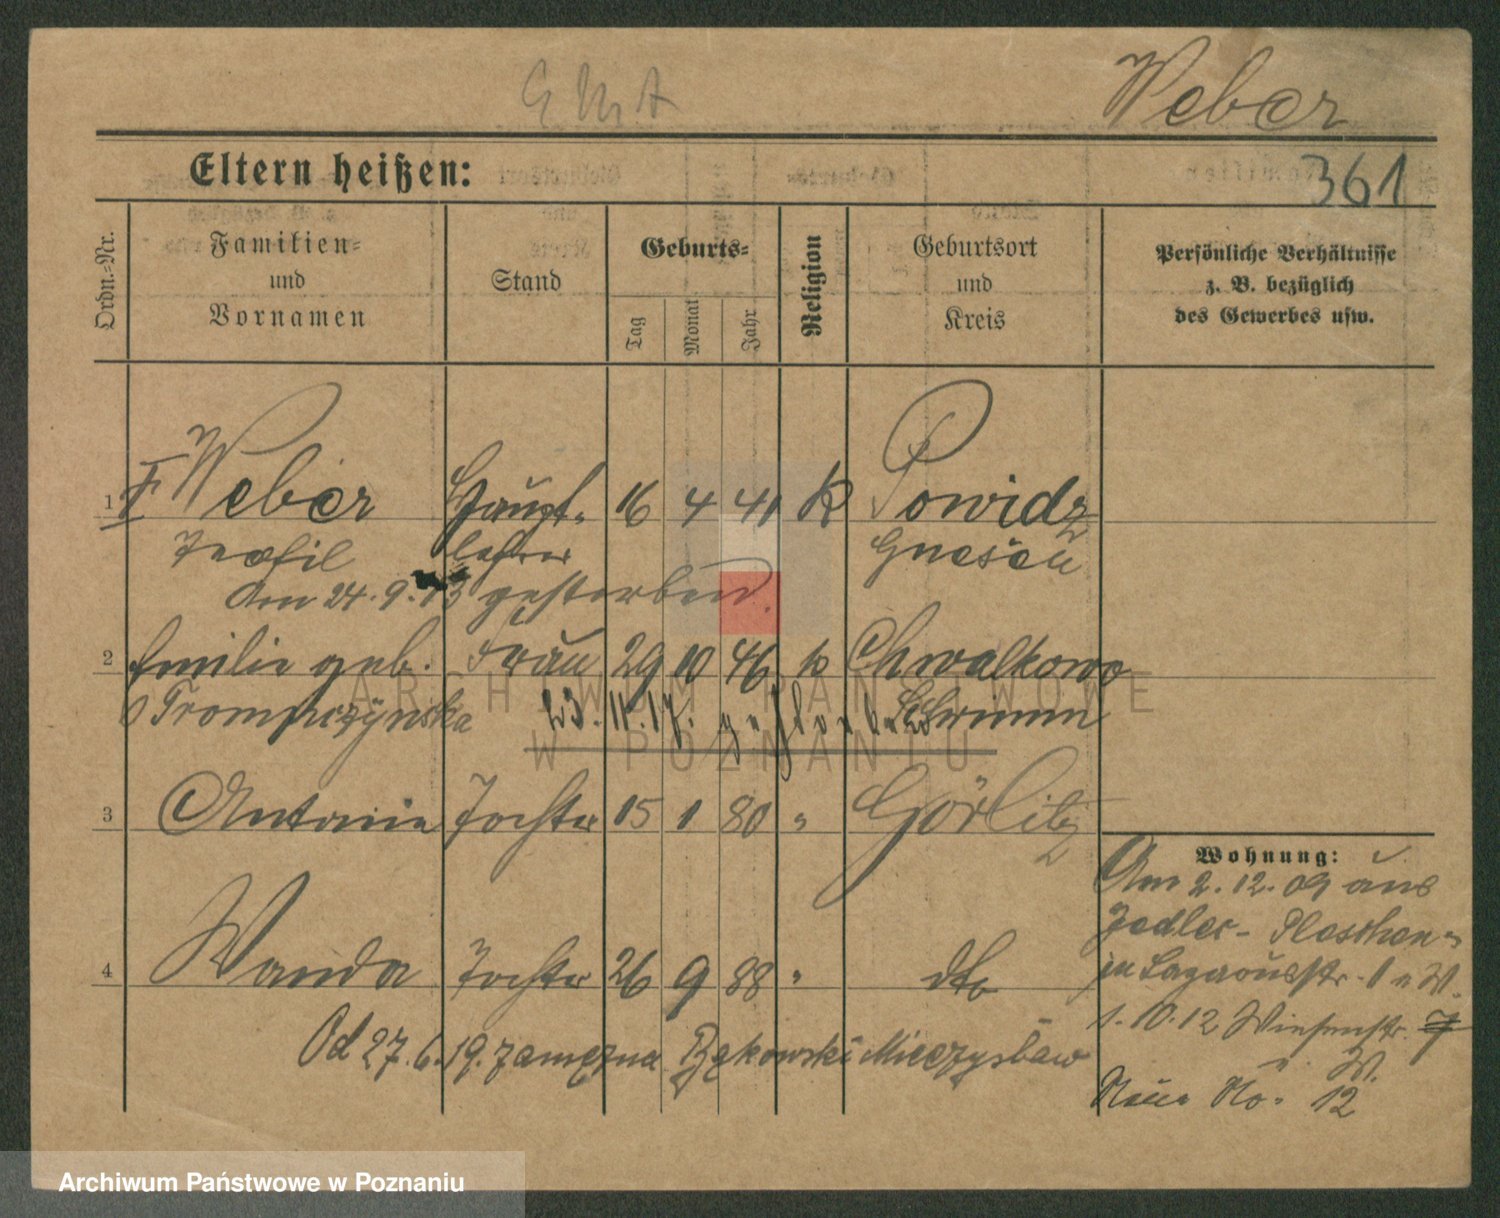 Weber
361
Eltern heißen:
Ordn.=Nr.
Familien=
und
Vornamen
Stand
Geburts=
Tag
Monat
Jahr
Religion
Geburtsort
und
Kreis
Persönliche Verhältnisse
z. B. bezüglich
des Gewerbes usw.
1 Weber Haupt- 16 4 41 K Powidz
Teofil lehrer Gnesen
Am 24.9.13 gestorben.
2 Emilie geb. Frau 29 10 46 k Chwalkowo
Trompczynska 23.11.17. gestorben Schrimm
3 Antonie Tochter 15 1 80 " Görlitz
4 Wanda Tochter 26 9 88 " dto
Od 27.6.19. zamężna Bękowski Mieczysław
Wohnung:
Am 2.12.09 aus
Jedlec- Pleschen
in Lazarusstr. 1 W.
1.10.12 Wiesenstr. 7
W.
Neue No. 12
ARCHIWUM PAŃSTWOWE
W POZNANIU
Archiwum Państwowe w Poznaniu